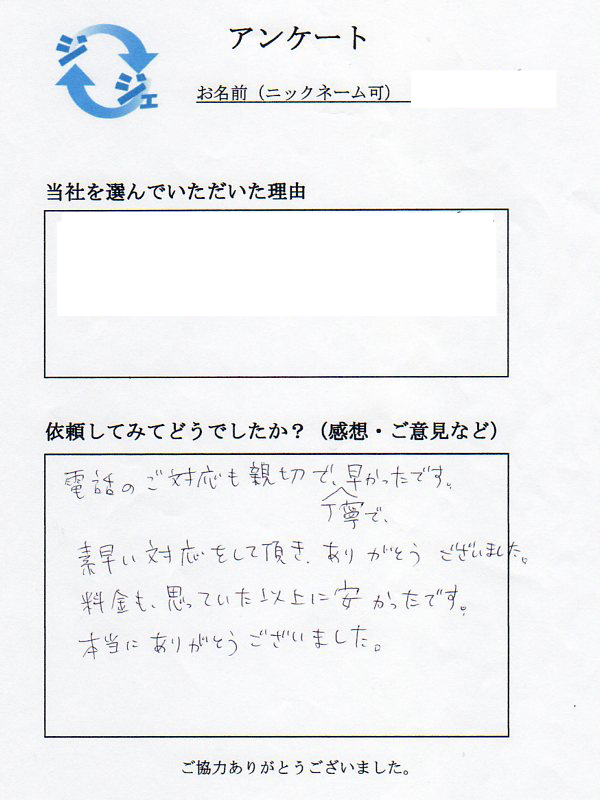 ジジェ
アンケート
お名前（ニックネーム可）
当社を選んでいただいた理由
依頼してみてどうでしたか？（感想・ご意見など）
電話のご対応も親切で、早かったです。
丁寧で、
素早い対応をして頂き、ありがとうございました。
料金も、思っていた以上に安かったです。
本当にありがとうございました。
ご協力ありがとうございました。